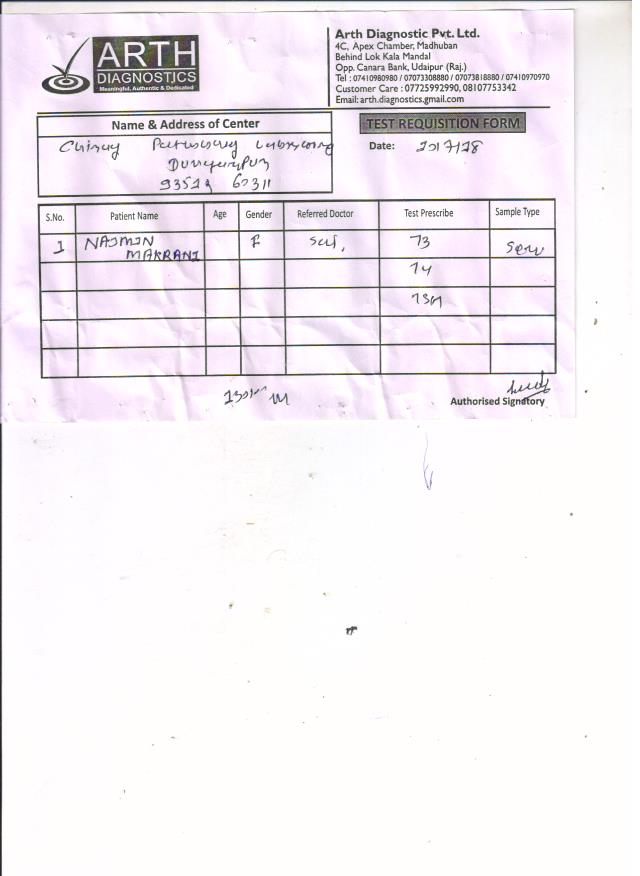 ARTH
DIAGNOSTICS
Meaningful, Authentic & Dedicated
Arth Diagnostic Pvt. Ltd.
4C, Apex Chamber, Madhuban
Behind Lok Kala Mandal
Opp. Canara Bank, Udaipur (Raj.)
Tel : 07410980980 / 07073308880 / 07073818880 / 07410970970
Customer Care : 07725992990, 08107753342
Email: arth.diagnostics.gmail.com
Name & Address of Center
TEST REQUISITION FORM
Date:
S.No. Patient Name Age Gender Referred Doctor Test Prescribe Sample Type
1 NAJMIN F 73
MAKRANI
T4
TSH
Authorised Signatory